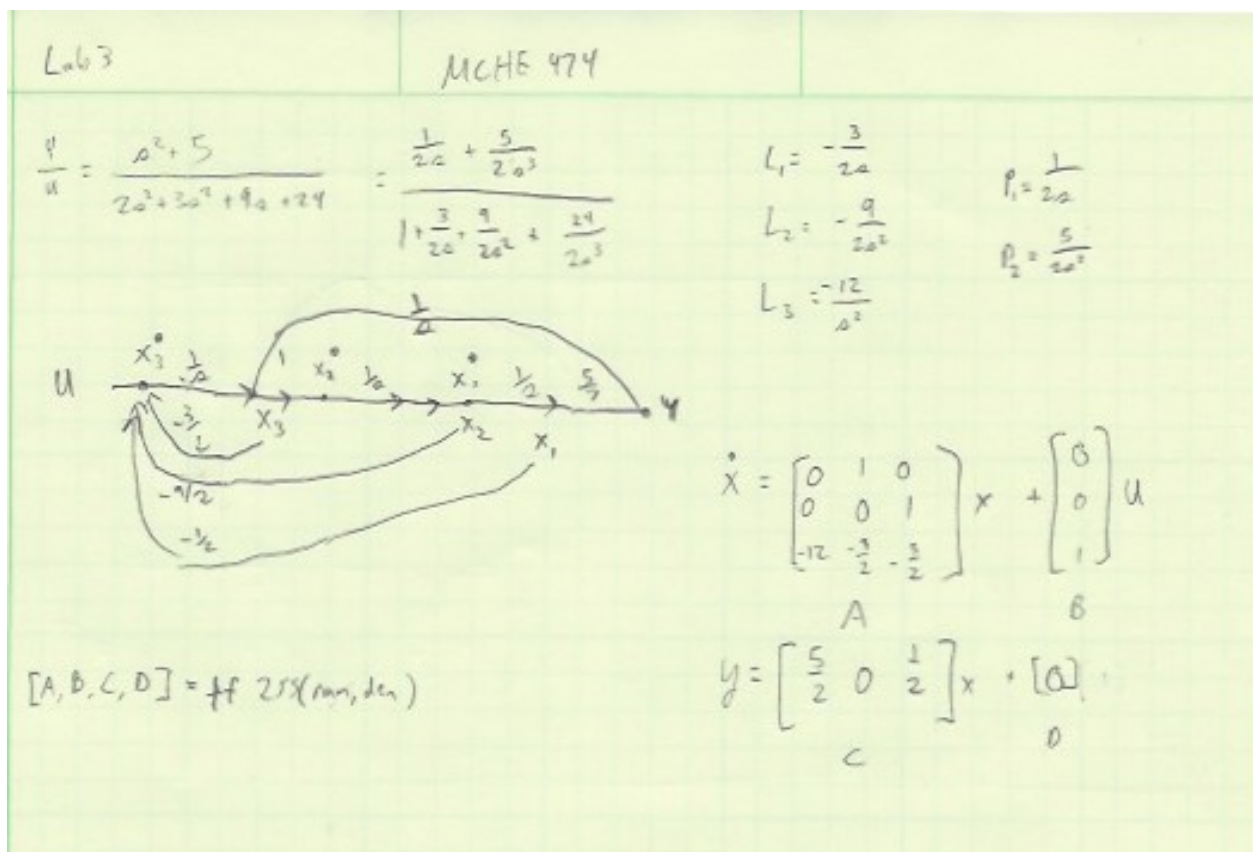 Lab 3 MCHE 474
Y/u = (s²+5)/(2s³+3s²+9s+24) = (1/2s + 5/2s³)/(1+3/2s+9/2s²+24/2s³)
L₁= -3/2s
L₂= -9/2s²
L₃= -12/s²
P₁= 1/2s
P₂= 5/2s²
U ẋ₃ 1/s 1 ẋ₂ 1/s ẋ₁ 1/s 5/2 Y
x₃ x₂ x₁
-3/2
-9/2
ẋ = [0 1 0; 0 0 1; -12 -9/2 -3/2] x + [0; 0; 1] u
A B
y = [5/2 0 1/2] x + [0]
C D
[A, B, C, D] = tf 2ss(num, den)